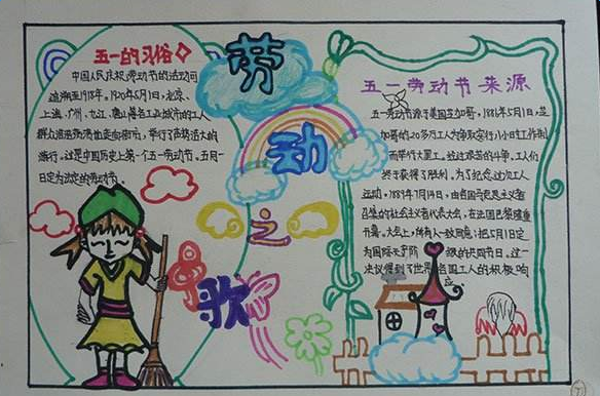 五一的习俗
中国人民庆祝劳动节的活动可
追溯至1918年。1920年5月1日,北京、
上海、广州、九江、唐山等各工业城市的工人
群众浩浩荡荡地走向街市,举行了声势浩大的
游行,这是中国历史上第一个五一劳动节,五月一
日定为法定的劳动节。
劳
动
之
歌
五一劳动节来源
五一劳动节源于美国芝加哥,1881年5月1日,芝
加哥的20多万工人为争取实行八小时工作制
而举行大罢工。经过艰苦的斗争,工人们
终于获得了胜利。为了纪念这次工人
运动,1889年7月14日,由各国马克思主义者
召集的社会主义者代表大会,在法国巴黎隆重
开幕。大会上,所有人一致同意,把5月1日定
为国际无产阶级的共同节日。这一
决议得到了世界各国工人的积极响
应。